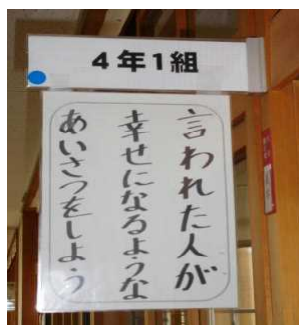 4年1組
言われた人が
幸せになるような
あいさつをしよう